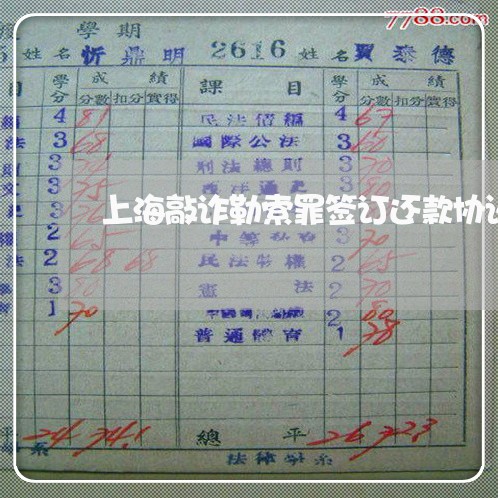 7788.com
學期
姓名 忻鼎明 2616 姓名 賈泰德
目 學分 成績 課目 學分 成績
分數 扣分 實得 分數 扣分 實得
4 81 民法債編 4 67
法 3 68 國際公法 3 60
3 刑法總則 3 70
文 3 75 3 80
上海敲诈勒索罪签订还款协议
2 65 3 70
法 2 68 68 民法物權 2 65
3 80 憲法 2 70
1 70 2 80
普通體育 1 78
平 24 74.1 總平 26 72.3
系 法律學系